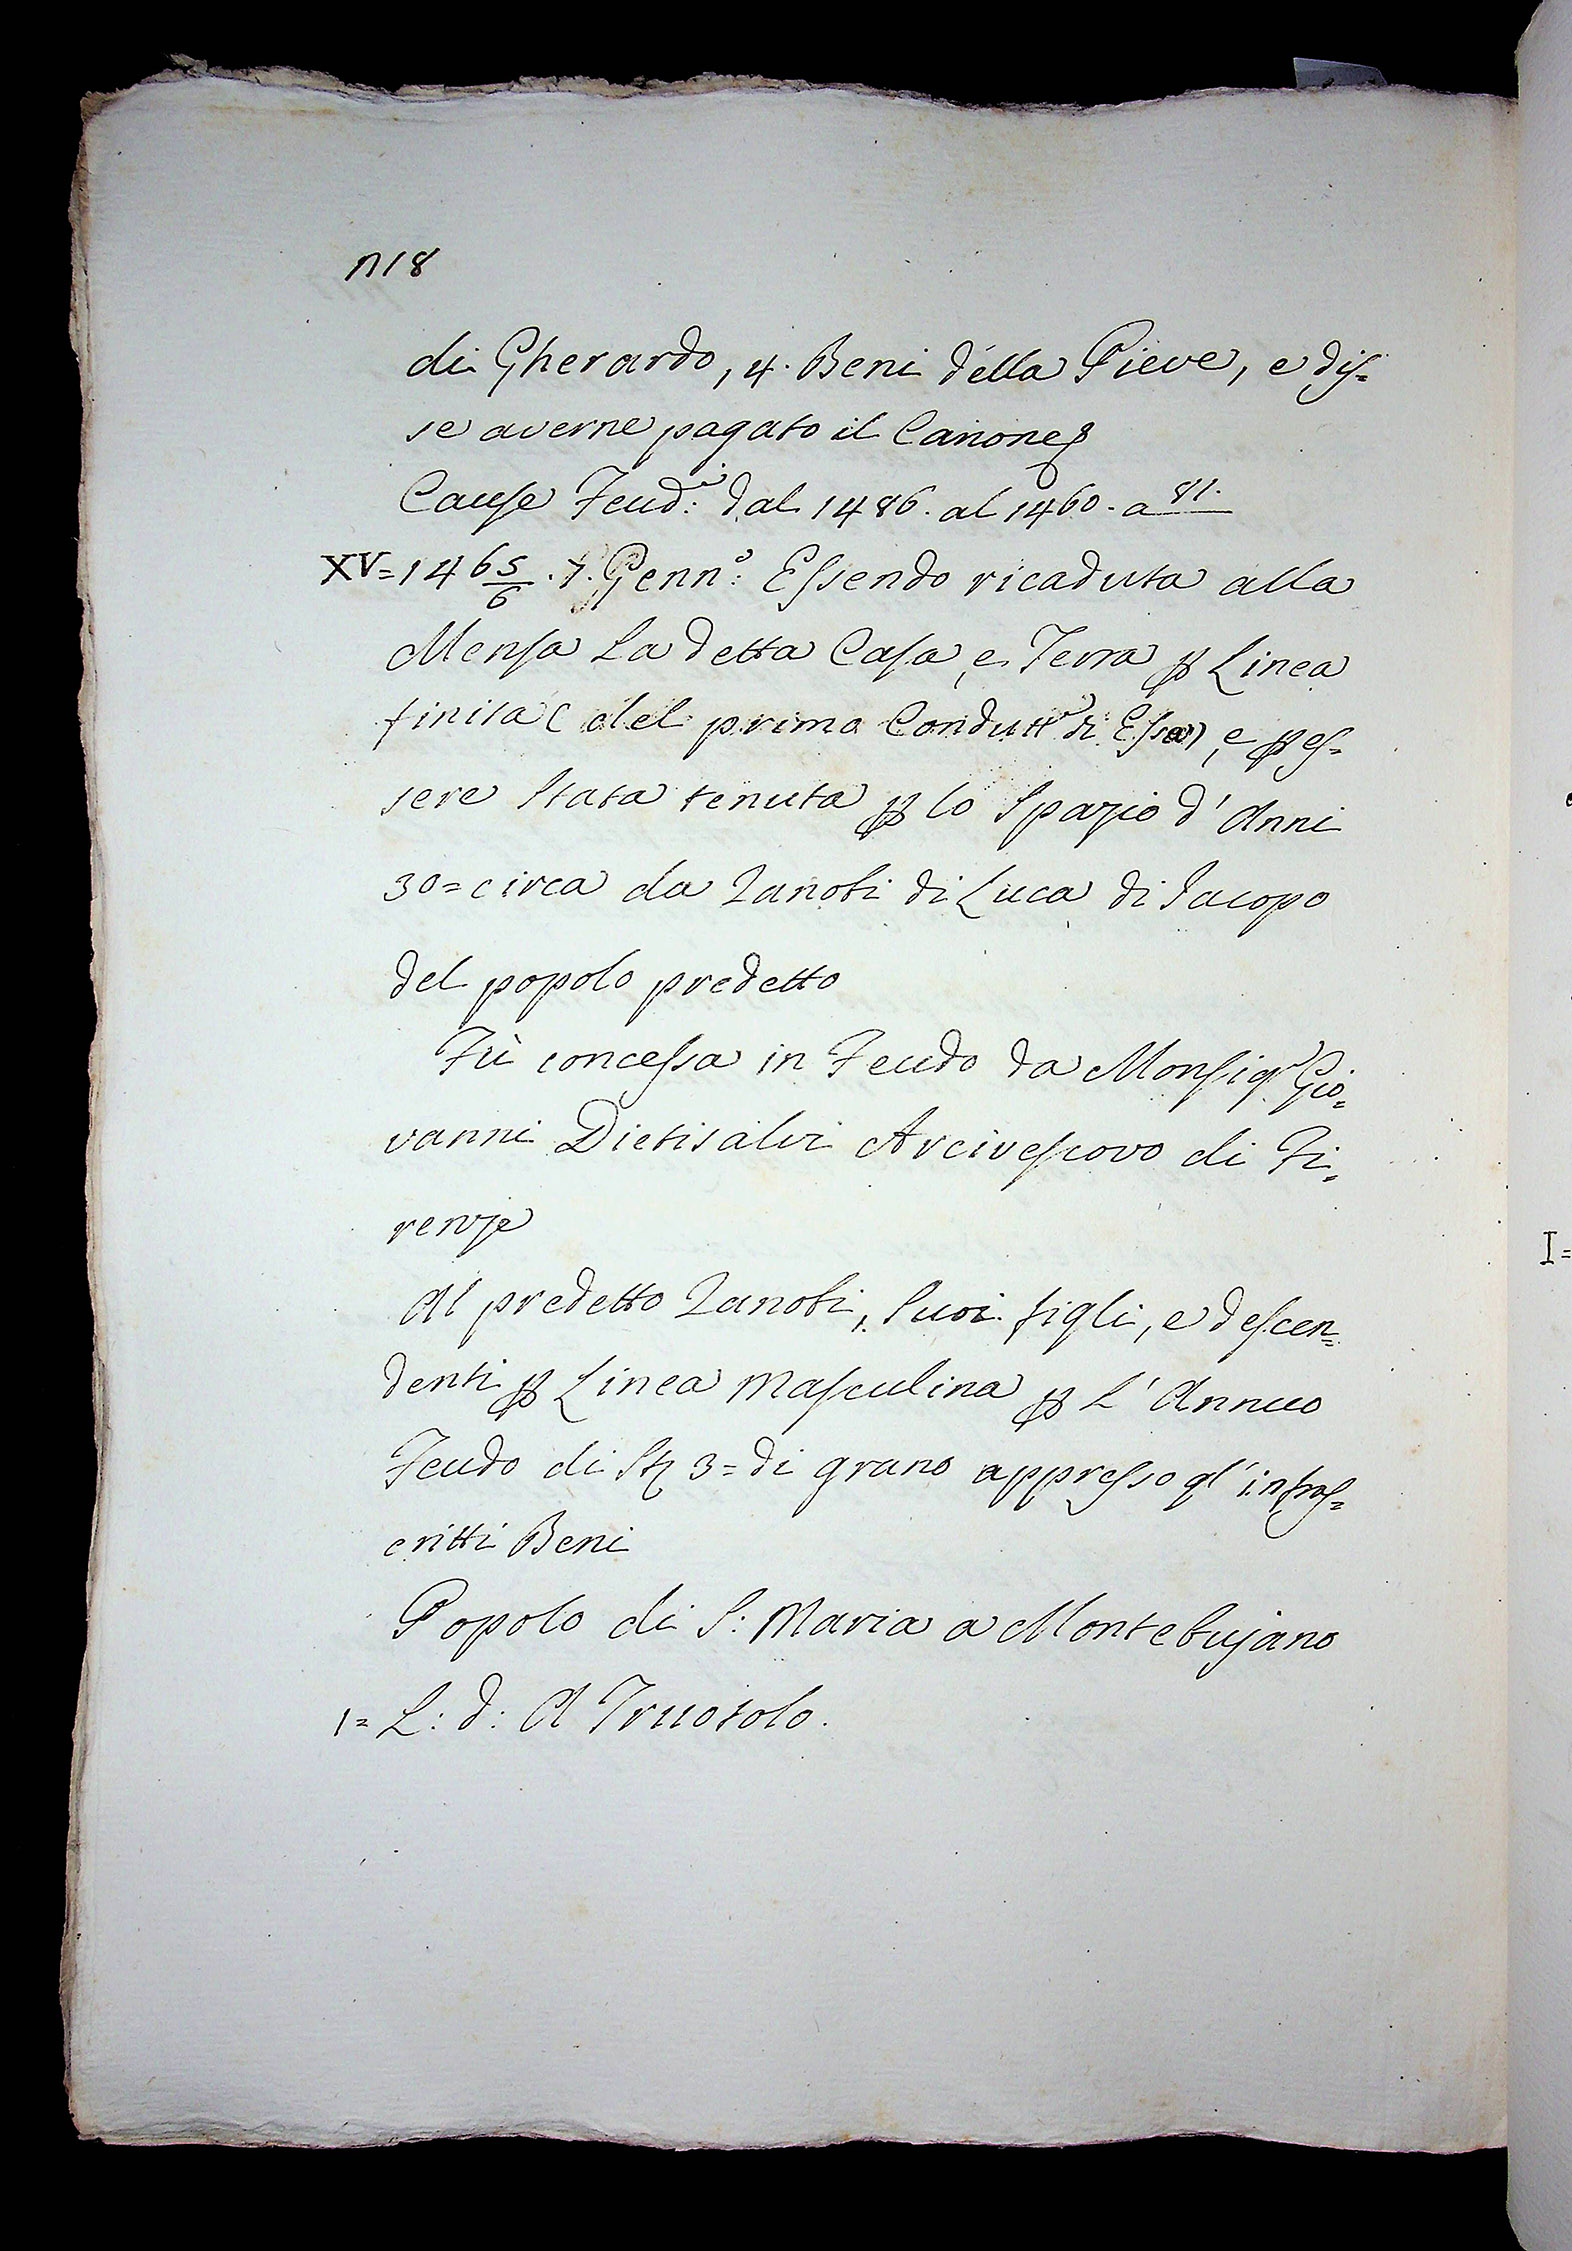 n18
di Gherardo, 4. Beni della Pieve, e dis=
se averne pagato il Canone
Cause Feud:i dal 1486. al 1460. a 81.
XV=1465/6. 7. Genn:o Essendo ricaduta alla
Mensa La detta Casa, e Terra p Linea
finita ( del primo Condutt.e di Essa), e p es=
sere Stata tenuta p lo Spazio d'Anni
30= circa da Zanobi di Luca di Jacopo
del popolo predetto
Fù concessa in Feudo da Monsig.r Gio=
vanni Dietisalvi Arcivescovo di Fi=
renze
Al predetto Zanobi, Suoi figli, e descen=
denti p Linea Masculina p L'Annuo
Feudo di St 3= di grano appresso gl'infras=
critti Beni
Popolo di S: Maria a Montebujano
1= L: d: A Truotolo.
I=